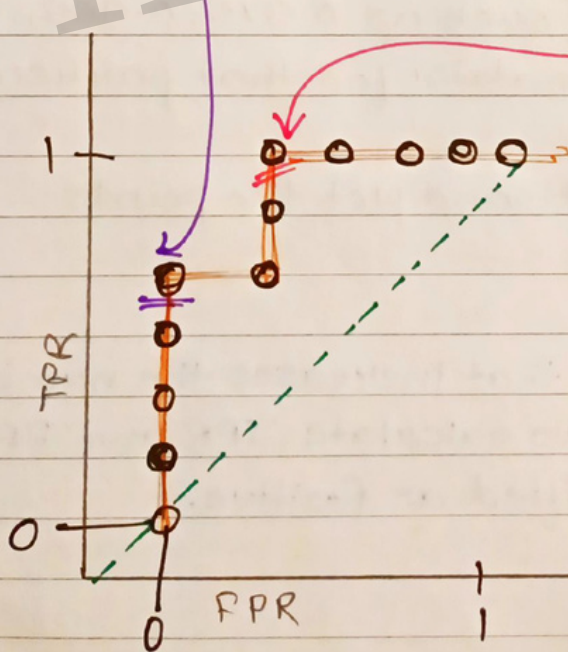 1
TPR
0
FPR
0
1